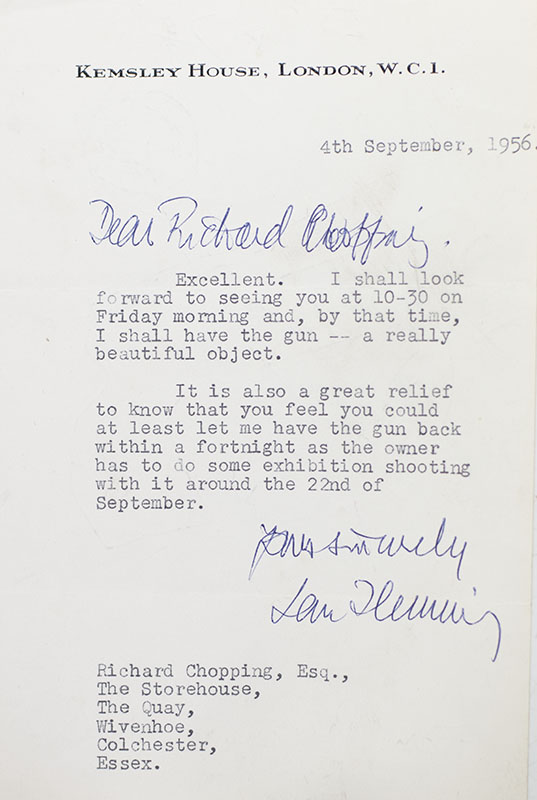 Kemsley House, London, W.C.1.
4th September, 1956.
Dear Richard Chopping.
Excellent. I shall look
forward to seeing you at 10-30 on
Friday morning and, by that time,
I shall have the gun -- a really
beautiful object.
It is also a great relief
to know that you feel you could
at least let me have the gun back
within a fortnight as the owner
has to do some exhibition shooting
with it around the 22nd of
September.
Yours sincerely
Ian Fleming
Richard Chopping, Esq.,
The Storehouse,
The Quay,
Wivenhoe,
Colchester,
Essex.